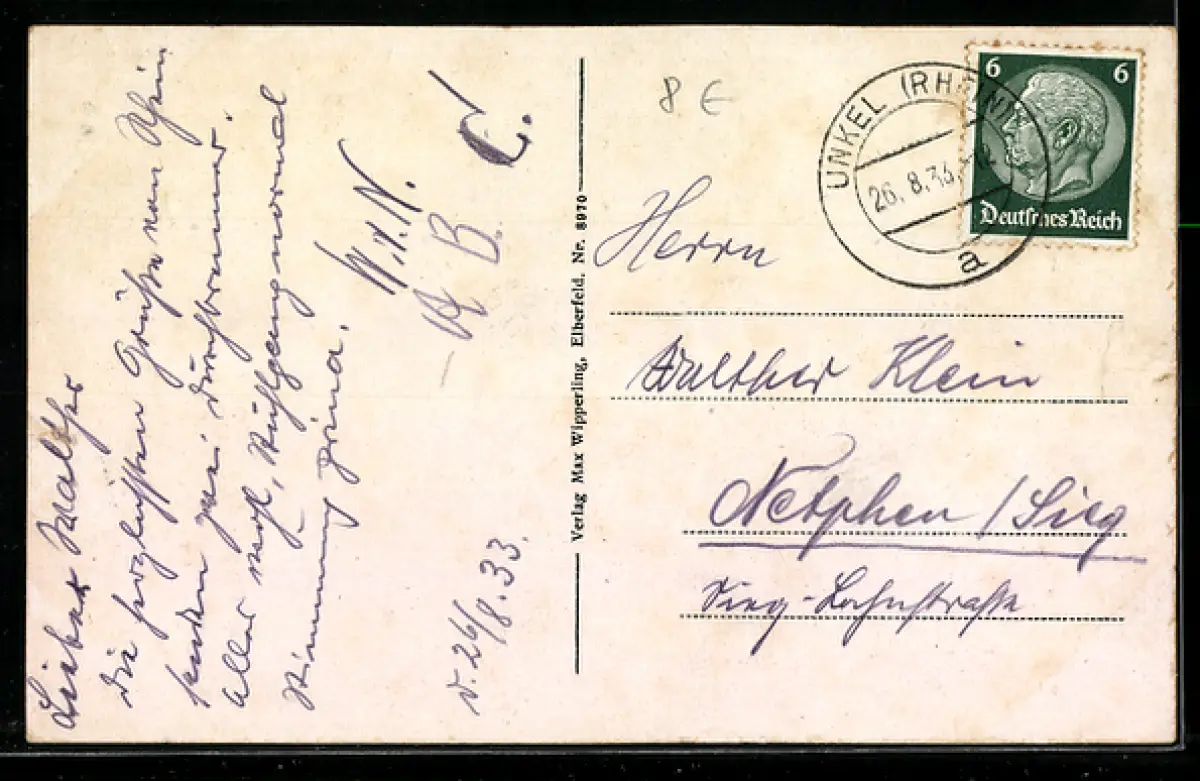 Lieber Walther
die herzlichsten Grüße vom Rhein
senden zwei
Alles wohl, Stuhlgang normal
Stimmung prima.
W. v. N.
A B.
C.
d. 26/8.33.
Verlag Max Wipperling, Elberfeld. Nr. 8970
8 €
UNKEL (RHEIN)
26. 8. 33.
a
6 6
Deutsches Reich
Herrn
Walther Klein
Netphen / Sieg
Sieg-Lahnstraße